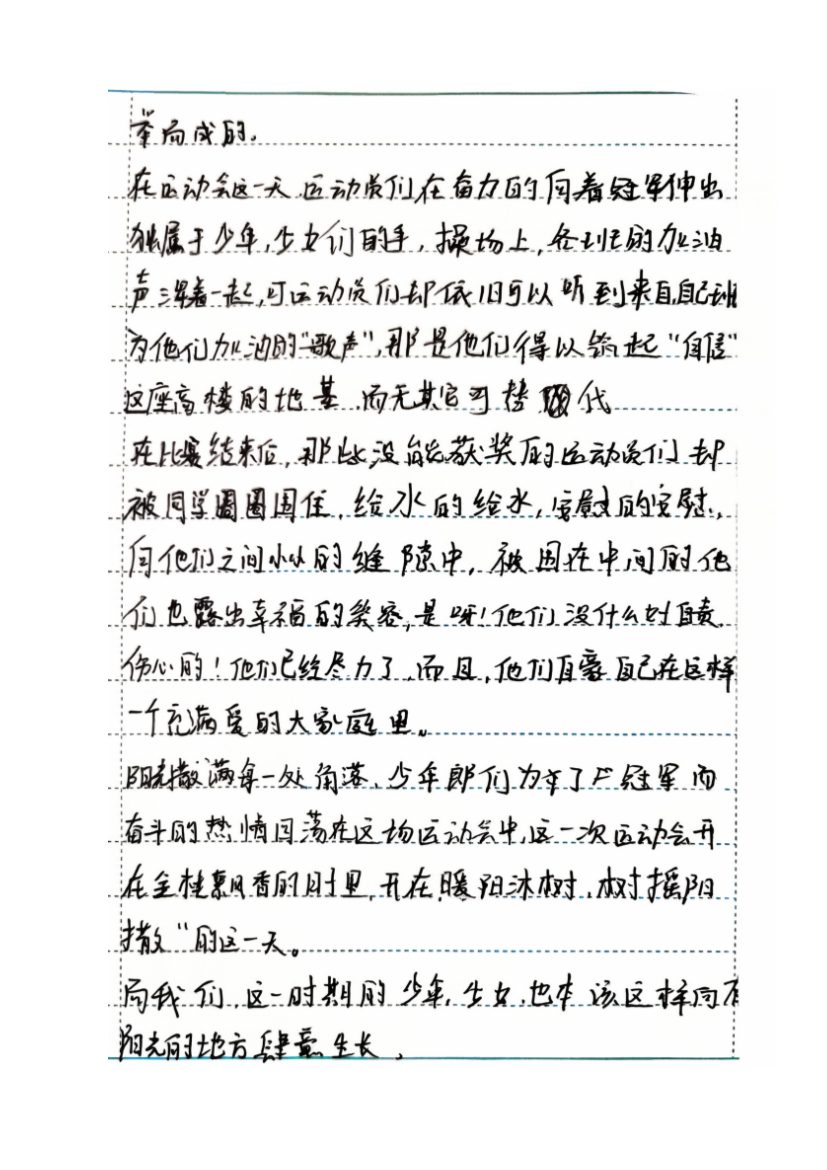 举而成的。
在运动会这一天,运动员们在奋力的向着冠军伸出
独属于少年,少女们的手,操场上,各班的加油
声浑着一起,可运动员们却依旧可以听到来自自己班
为他们加油的“歌声”,那是他们得以筑起“自信”
这座高楼的地基,而无其它可替代
在比赛结束后,那些没能获奖的运动员们却
被同学圈圈围住,给水的给水,安慰的安慰,
向他们之间小小的缝隙中,被围在中间的他
们也露出幸福的笑容,是呀!他们没什么好自责
伤心的!他们已经尽力了,而且,他们自豪自己在这样
一个充满爱的大家庭里。
阳光撒满每一处角落,少年郎们为了冠军而
奋斗的热情回荡在这场运动会中,这一次运动会开
在金桂飘香的时里,开在“暖阳沐树,树摇阳
撒”的这一天。
而我们,这一时期的少年,少女,也本该这样向有
阳光的地方肆意生长,